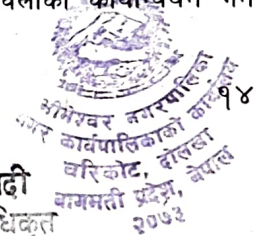 कार्यान्वयन गर्न
१४
भीमेश्वर नगरपालिका
नगर कार्यपालिकाको कार्यालय
चरिकोट, दोलखा
बागमती प्रदेश, नेपाल
२०७३